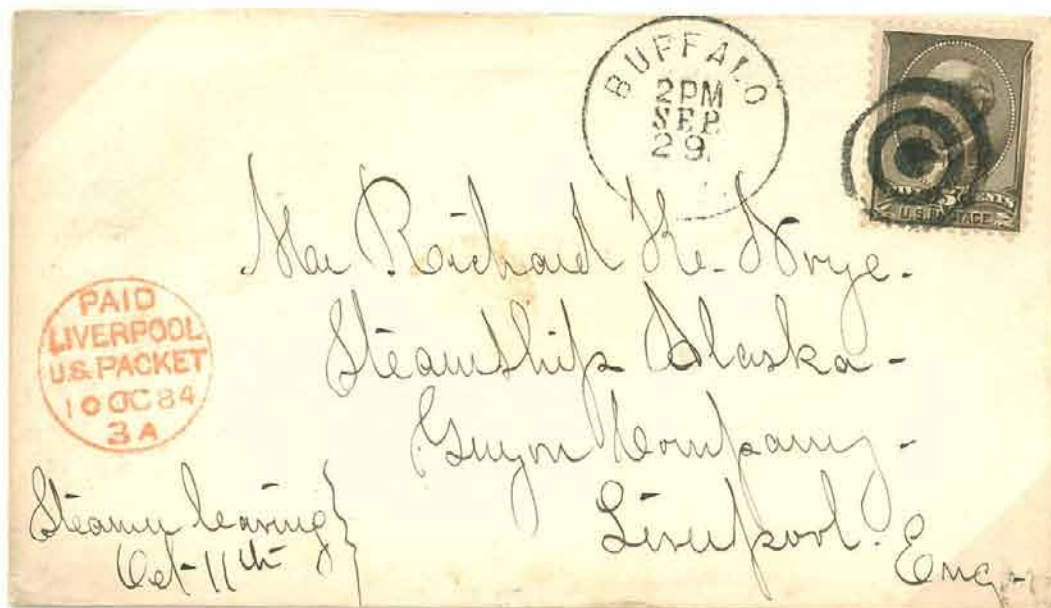 BUFFALO
2PM
SEP
29
CENTS
U.S. POSTAGE
Mr Richard K. Noye.
Steamship Alaska -
Guyon Company -
Liverpool. Eng -
PAID
LIVERPOOL
U.S. PACKET
10 OC 84
3 A
Steamer leaving
Oct - 11th